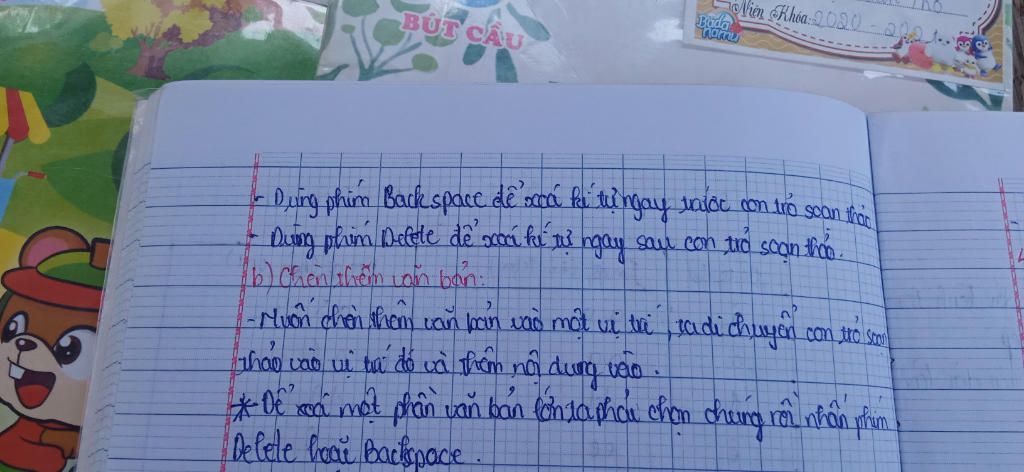 BÚT CẦU
Niên Khóa: 2020 - 2021
- Dùng phím Backspace để xoá kí tự ngay trước con trỏ soạn thảo
- Dùng phím Delete để xoá kí tự ngay sau con trỏ soạn thảo.
b) Chèn thêm văn bản:
- Muốn chèn thêm văn bản vào một vị trí, ta di chuyển con trỏ soạn
thảo vào vị trí đó và thêm nội dung vào.
* Để xoá một phần văn bản lớn ta phải chọn chúng rồi nhấn phím
Delete hoặc Backspace.